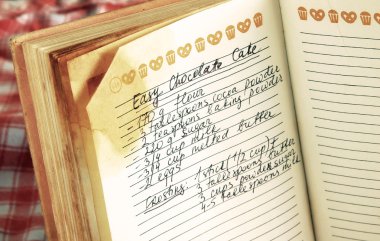 Easy Chocolate Cake
- 170 g flour
- 3 tablespoons cocoa powder
- 3 teaspoons baking powder
- 210 g sugar
- 3/4 cup milk
- 3/4 cup melted butter
- 2 eggs
Frosting: 1 stick (1/2 cup) of
2 tablespoons butter
3 cups powder sugar
4-5 tablespoons milk